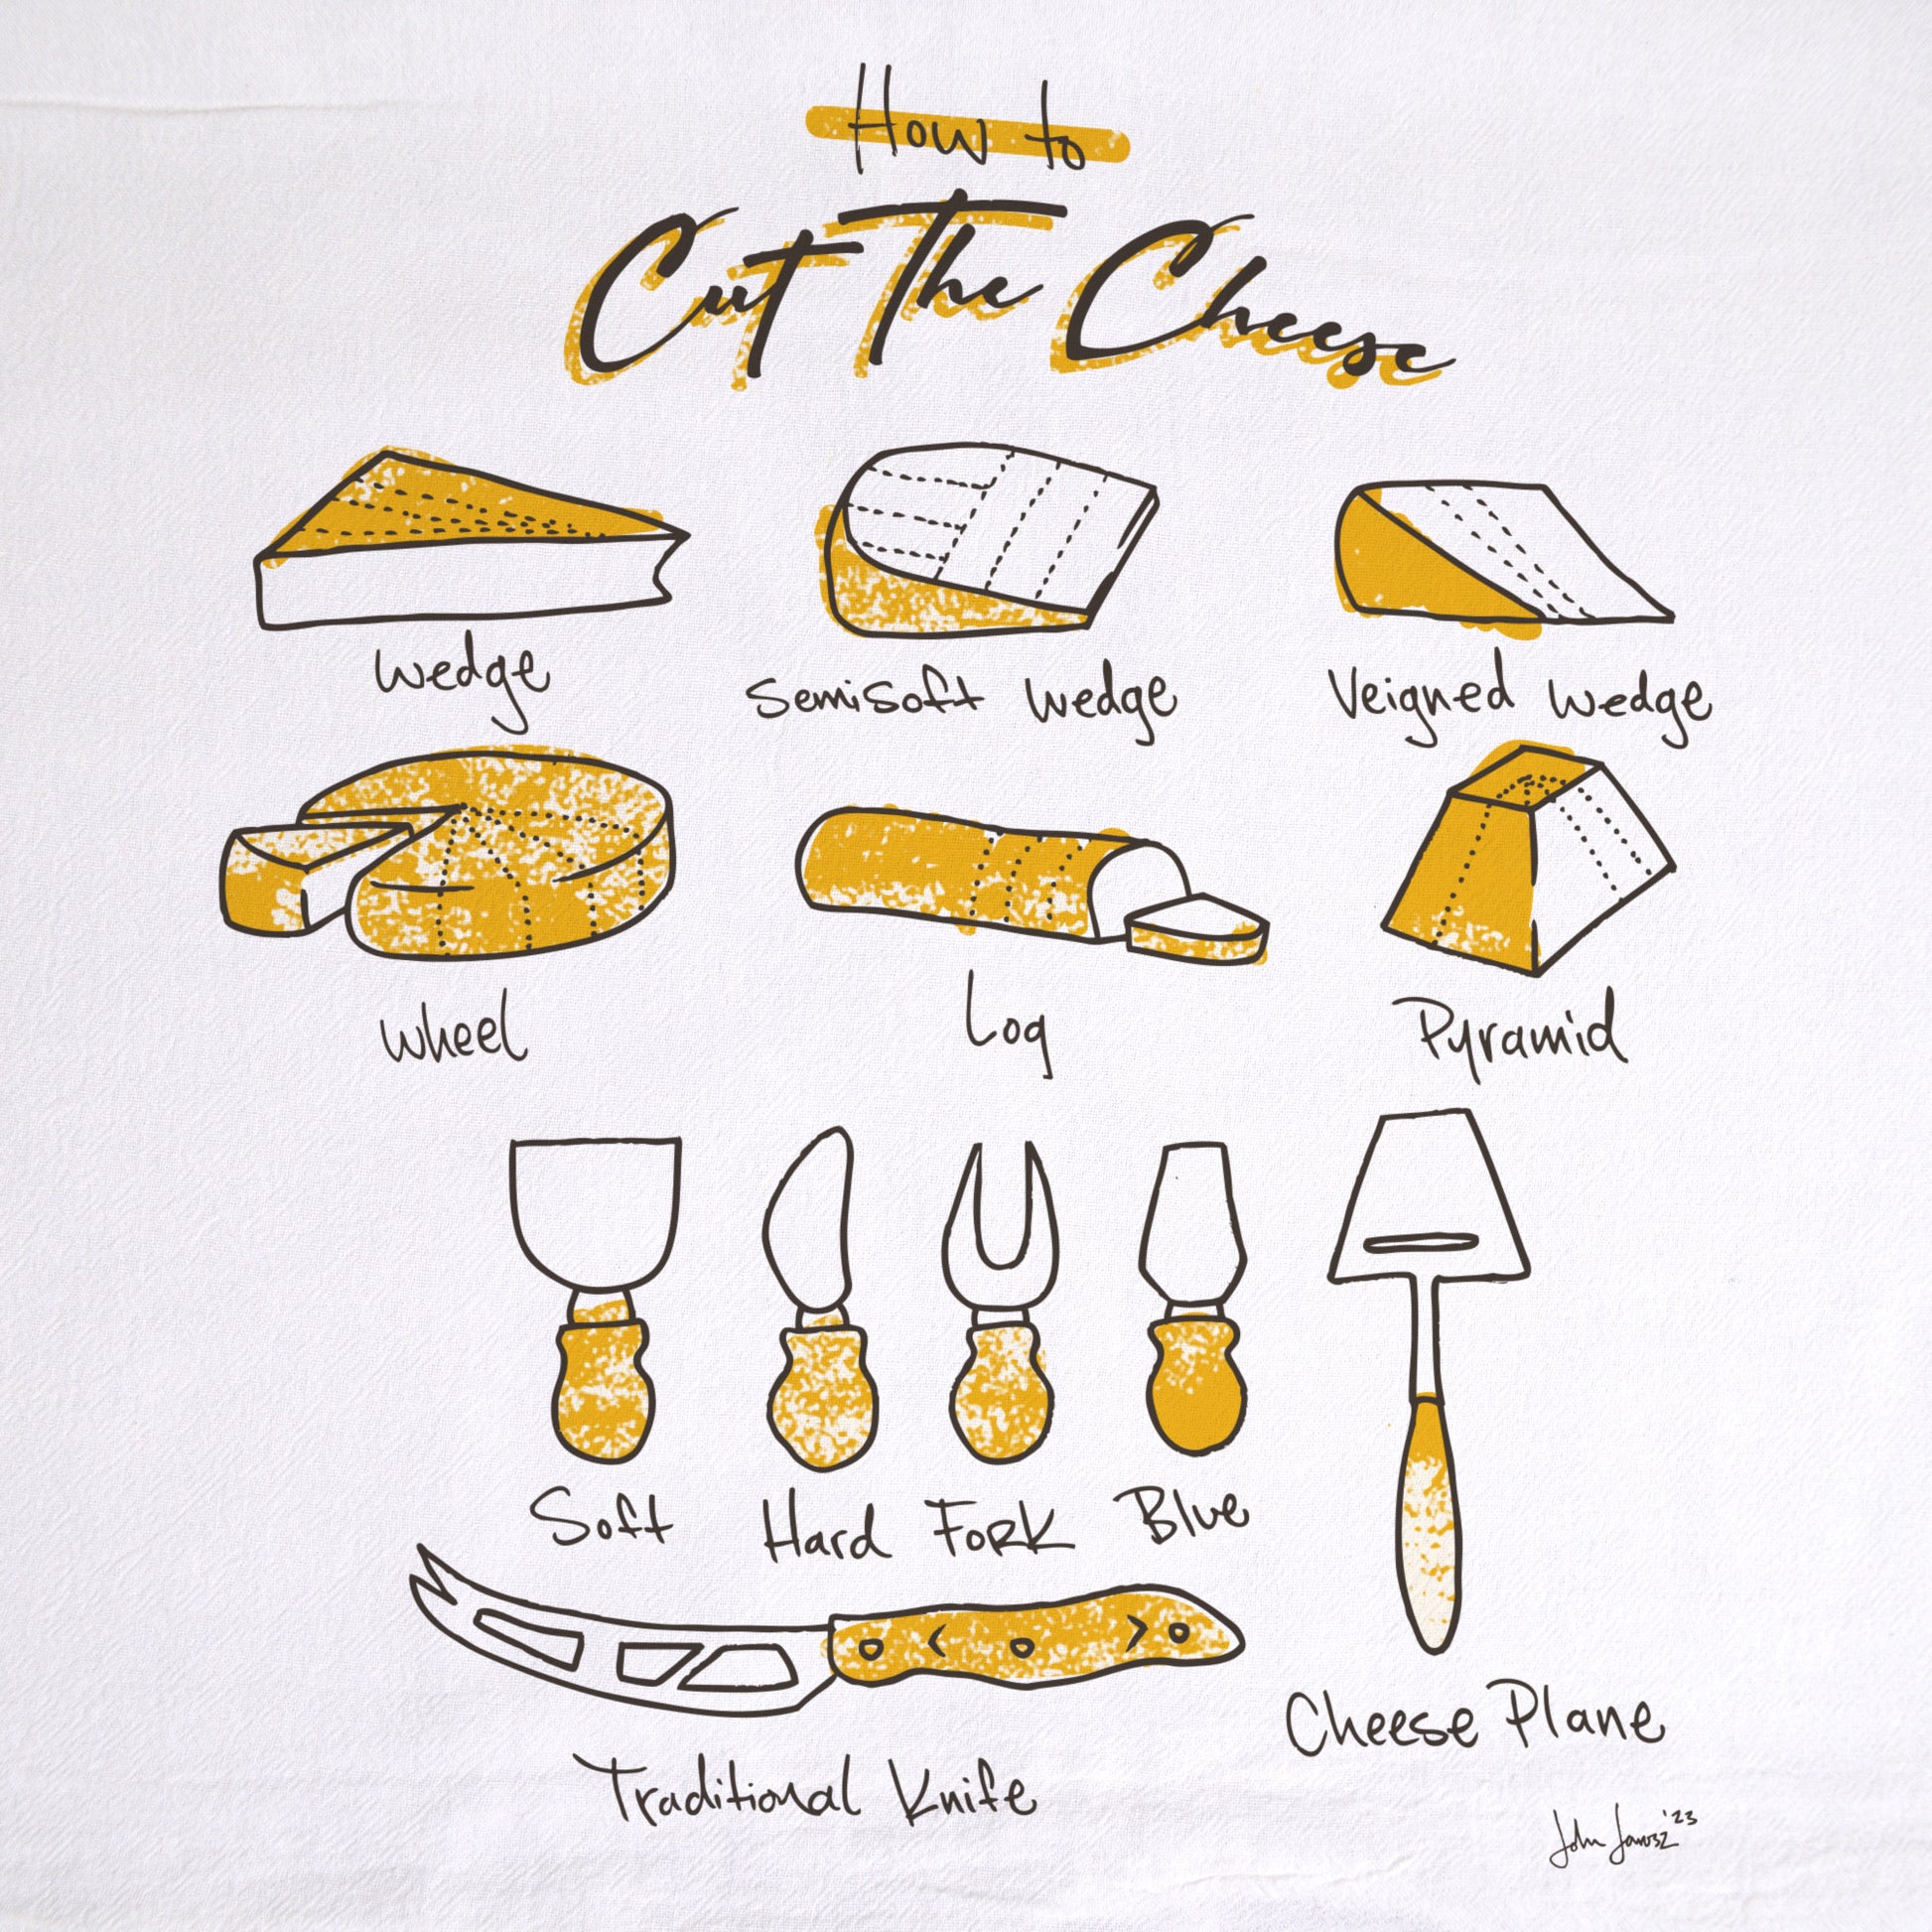 How to
Cut The Cheese
Wedge
Semisoft Wedge
Veigned Wedge
Wheel
Log
Pyramid
Soft
Hard
Fork
Blue
Traditional Knife
Cheese Plane
John '23